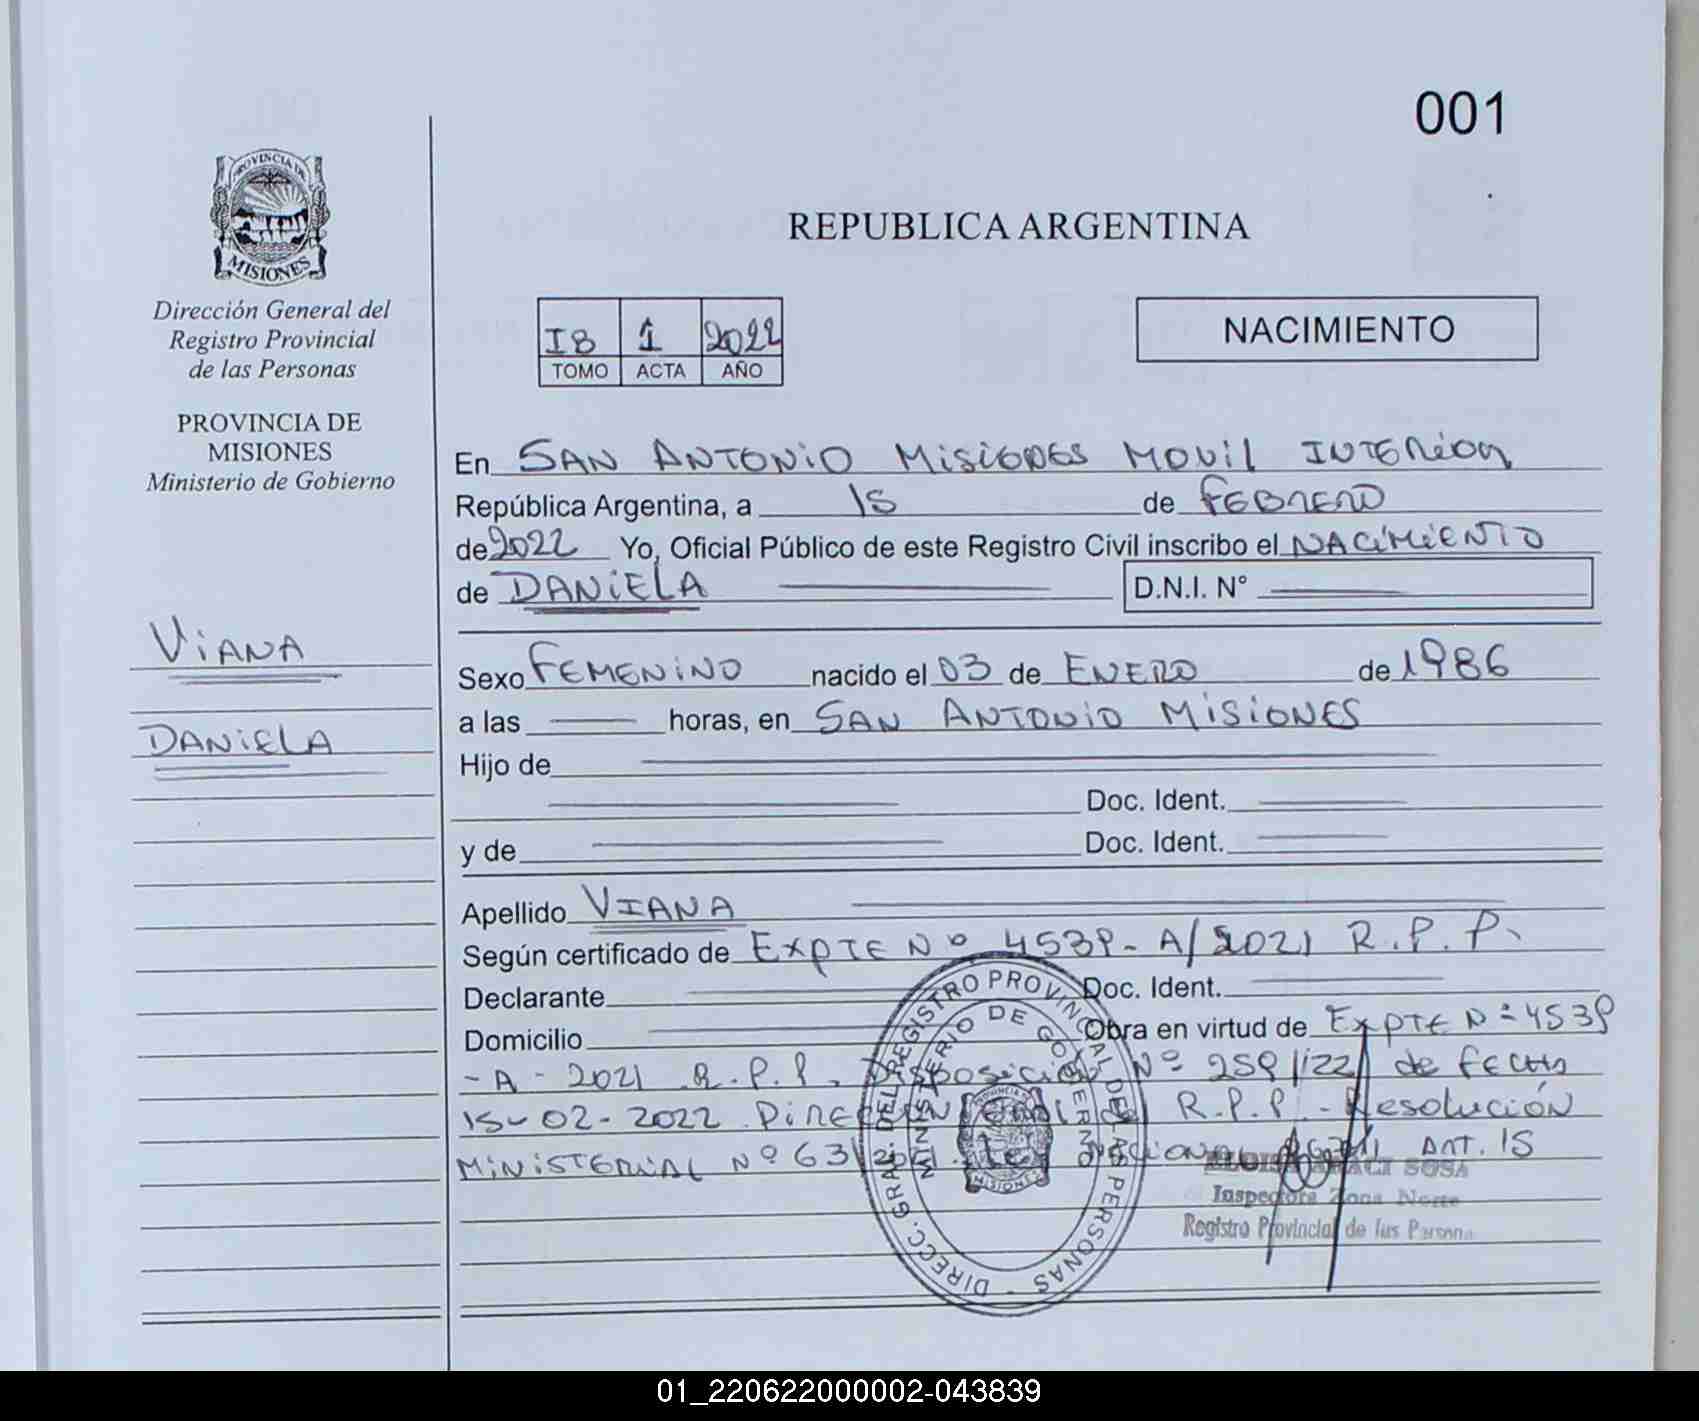 001
PROVINCIA DE
MISIONES
Dirección General del
Registro Provincial
de las Personas
PROVINCIA DE
MISIONES
Ministerio de Gobierno
VIANA
DANIELA
REPUBLICA ARGENTINA
IB 1 2022
TOMO ACTA AÑO
NACIMIENTO
En SAN ANTONIO MISIONES MOVIL INTERIOR
República Argentina, a 15 de FEBRERO
de 2022 Yo, Oficial Público de este Registro Civil inscribo el NACIMIENTO
de DANIELA D.N.I. N°
Sexo FEMENINO nacido el 03 de ENERO de 1986
a las horas, en SAN ANTONIO MISIONES
Hijo de
Doc. Ident.
y de Doc. Ident.
Apellido VIANA
Según certificado de EXPTE Nº 4539-A/2021 R.P.P.
Declarante Doc. Ident.
Domicilio Obra en virtud de EXPTE Nº 4539
-A-2021 R.P.P. Disposición Nº 259/22 de FECHA
15-02-2022 R.P.P.- Resolución
MINISTERIAL Nº 63 ART. 15
DIRECC. GRAL. DEL REGISTRO PROVINCIAL DE LAS PERSONAS -
MINISTERIO DE GOBIERNO
MISIONES
SOSA
Inspectora Zona Norte
Registro Provincial de las Persona
01_220622000002-043839